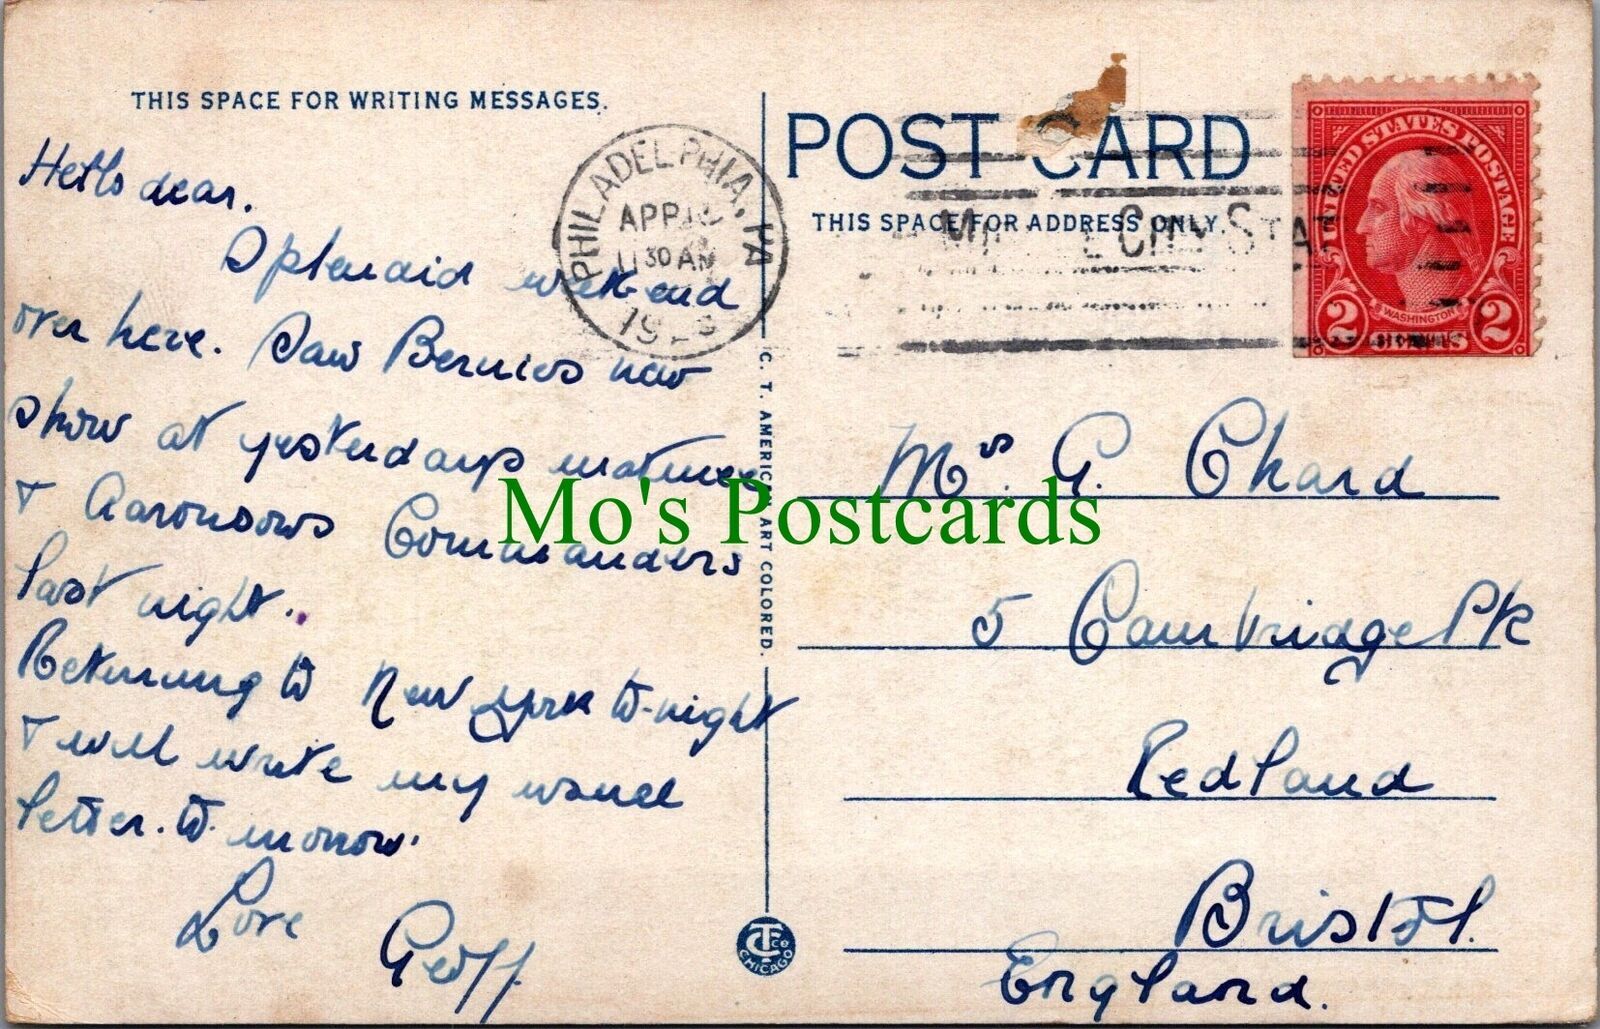 THIS SPACE FOR WRITING MESSAGES.
Hello dear.
Splendid week-end
over here. Saw Bernies new
show at yesterdays matinee
+ Aaronsons Commanders
last night.
Returning to New York to-night
+ will write my usual
letter to-morrow.
Love
Geoff.
PHILADELPHIA, PA
APR
11 30 AM
C. T. AMERICAN ART COLORED.
CT Co
CHICAGO
POST CARD
THIS SPACE FOR ADDRESS ONLY.
CITY STAT
UNITED STATES POSTAGE
WASHINGTON
2 2
Mrs. G. Chard
5 Cambridge Pk
Redland
Bristol.
England.
Mo's Postcards